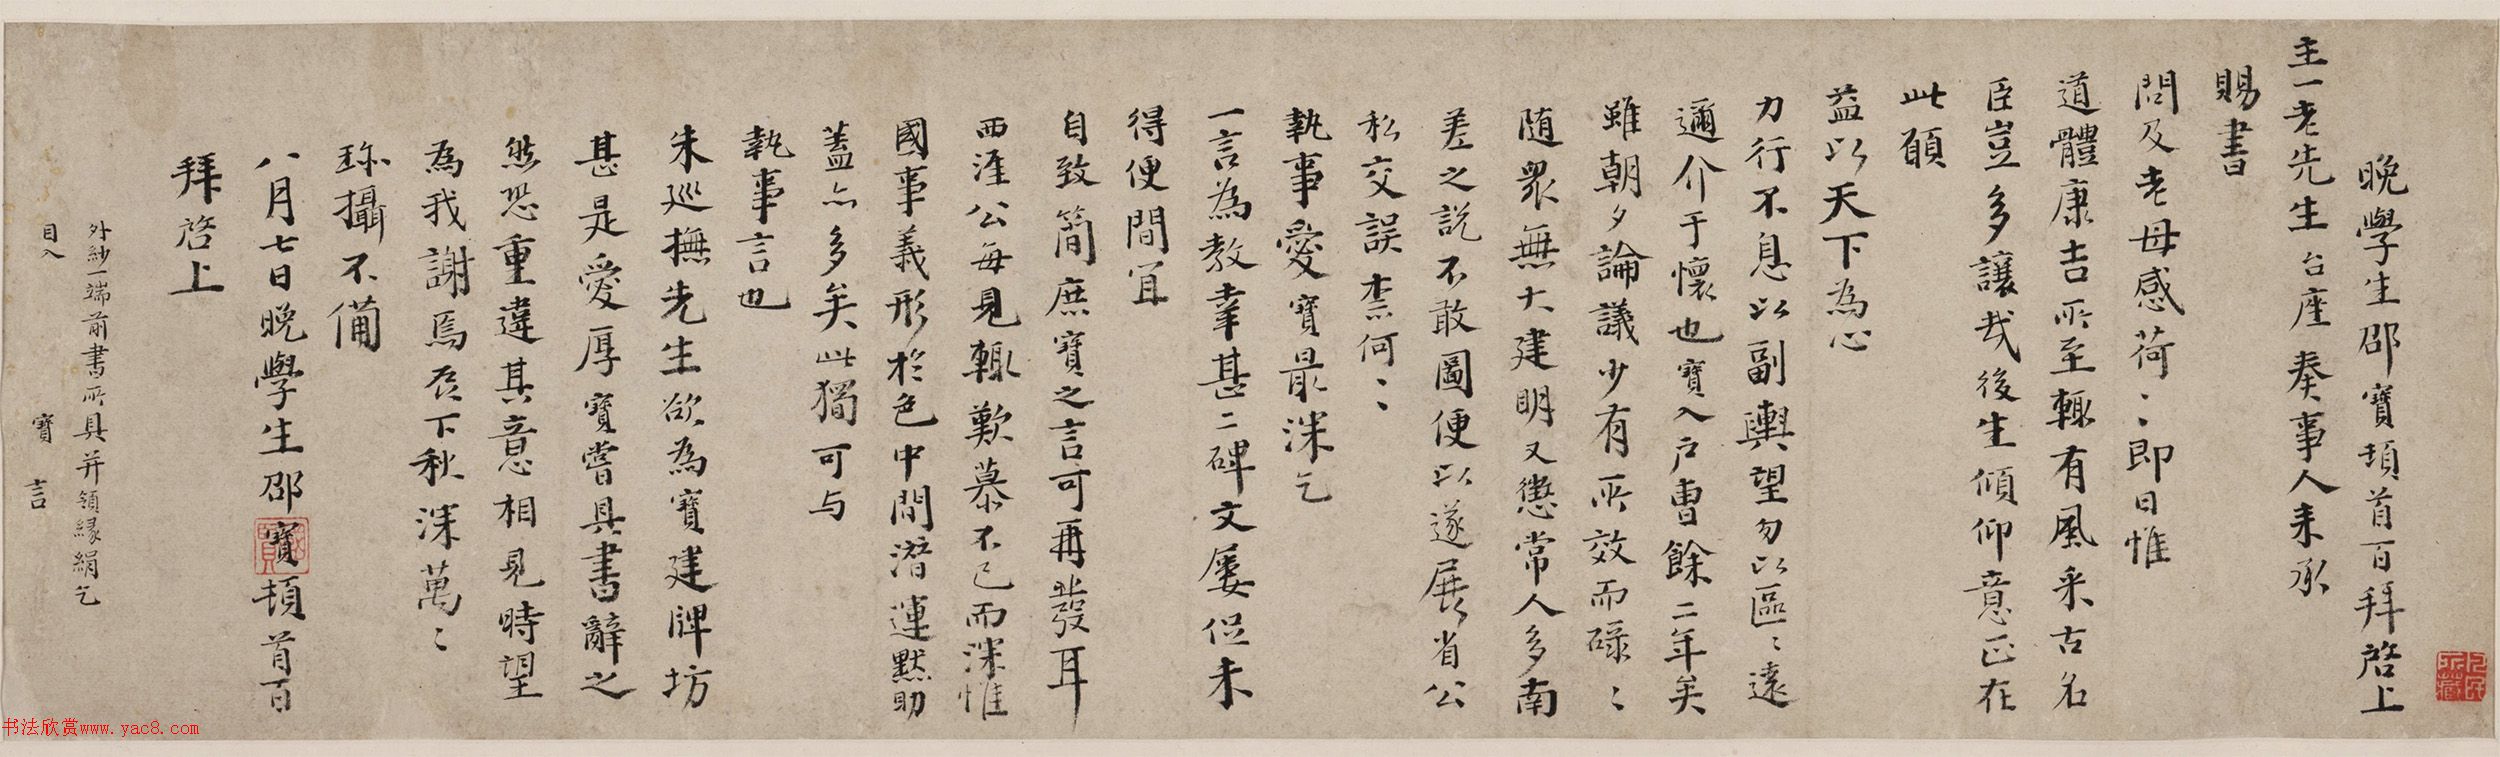 晚學生邵寶頓首百拜啓上
主一老先生台座奏事人来承
賜書
問及老母感荷〻即日惟
道體康吉所至輒有風采古名
臣豈多讓哉後生傾仰意正在
此願
益以天下為心
力行不息以副輿望勿以區〻遠
邇介于懷也寶入户曹餘二年矣
雖朝夕論議少有所效而碌〻
随衆無大建明又懲常人多南
差之說不敢圖便以遂展省公
私交誤柰何〻
執事愛寶最深乞
一言為教幸甚二碑文屡促未
得便間冝
自致簡庶寶之言可再發耳
西涯公每見輒歎慕不已而深惟
國事義形於色中間潛運默助
蓋亦多矣此獨可与
執事言也
朱巡撫先生欲為寶建牌坊
甚是愛厚寶嘗具書辭之
然恐重違其意相見時望
為我謝焉餘下秋深萬〻
珎攝不備
八月七日晚學生邵寶頓首百
拜啓上
外紗一端前書所具并領緣絹乞
目入
寶 言
书法欣赏www.yac8.com